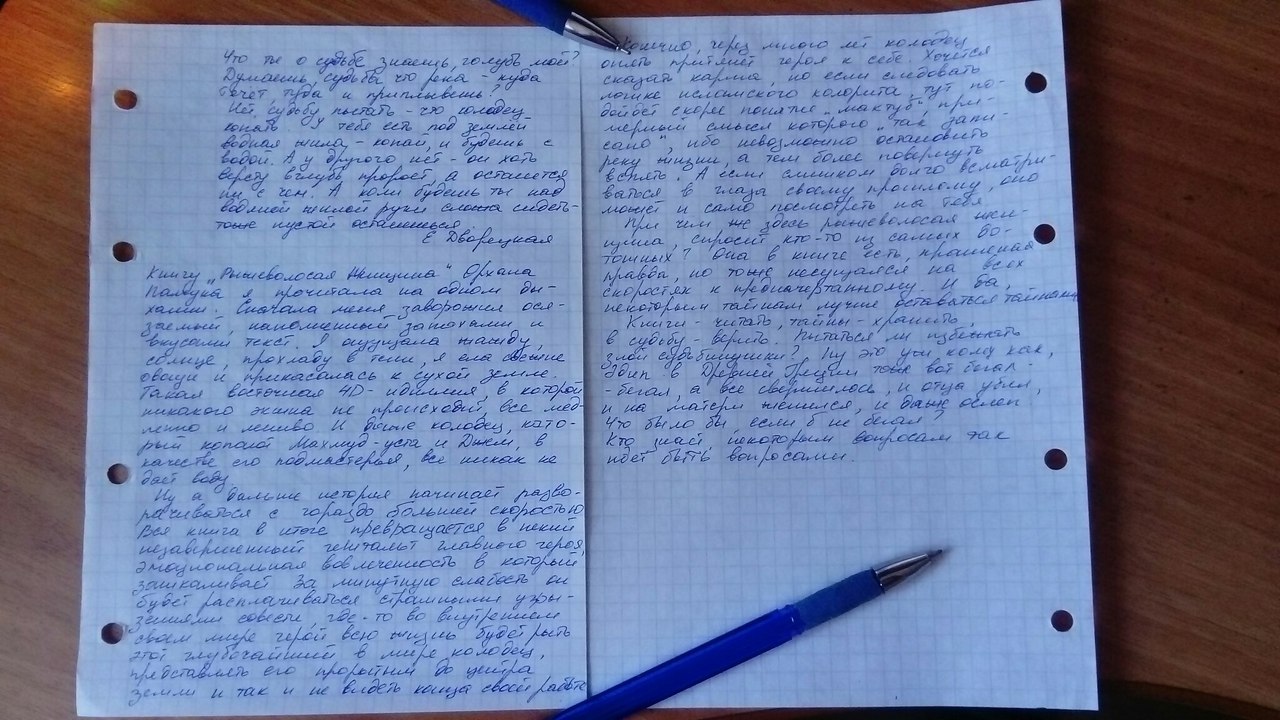 Что ты о судьбе знаешь, голубь мой?
Думаешь, судьба что река - куда
течет туда и приплывешь?
Нет, судьбу пытать - что колодец
копать. У тебя есть под землей
водная жила - копай, и будешь с
водой. А у другого нет - он хоть
версту вглубь пророет, а останется
ни с чем. А коли будешь ты над
водной жилой руки сложа сидеть -
тоже пустой останешься.
Е. Дворецкая
Книгу "Рыжеволосая Женщина" Орхана
Памука я прочитала на одном ды-
хании. Сначала меня заворожил ося-
заемый, наполненный запахами и
вкусами текст. Я ощущала жажду,
солнце, прохладу в тени, я ела свежие
овощи и прикасалась к сухой земле.
Такая восточная 4D-идиллия, в которой
никакого экшна не происходит, все мед-
ленно и лениво. И даже колодец кото-
рый копают Махмуд-уста и Джем, в
качестве его подмастерья, все никак не
дает воду.
Ну а дальше история начинает разво-
рачиваться с гораздо большей скоростью.
Вся книга в итоге превращается в некий
незавершенный гештальт главного героя,
эмоциональная вовлеченность в который
зашкаливает. За минутную слабость он
будет расплачиваться страшными угры-
зениями совести, где-то во внутреннем
своем мире герой всю жизнь будет рыть
этот глубочайший в мире колодец,
представлять его прорытым до центра
земли и так и не видеть конца своей работе
Конечно, через много лет колодец
опять притянет героя к себе. Хочется
сказать карма, но если следовать
логике исламского колорита, тут по-
дойдет скорее понятие "мактуб", при-
мерный смысл которого "так запи-
сано", ибо невозможно остановить
реку жизни, а тем более повернуть
вспять. А если слишком долго всматри-
ваться в глаза своему прошлому, оно
может и само посмотреть на тебя
При чем же здесь рыжеволосая жен-
щина, спросит кто-то из самых до-
тошных? Она в книге есть, крашеная
правда, но тоже несущаяся на всех
скоростях к предначертанному. И да,
некоторым тайнам лучше оставаться тайнами
Книги - читать, тайны - хранить,
в судьбу - верить. Пытаться ли избежать
злой судьбинушки? Ну это уж кому как,
Эдип в Древней Греции тоже вот бегал-
-бегал, а все свершилось, и отца убил,
и на матери женился, и даже ослеп
Что было бы, если б не бегал?
Кто знает, некоторым вопросам так
идет быть вопросами.